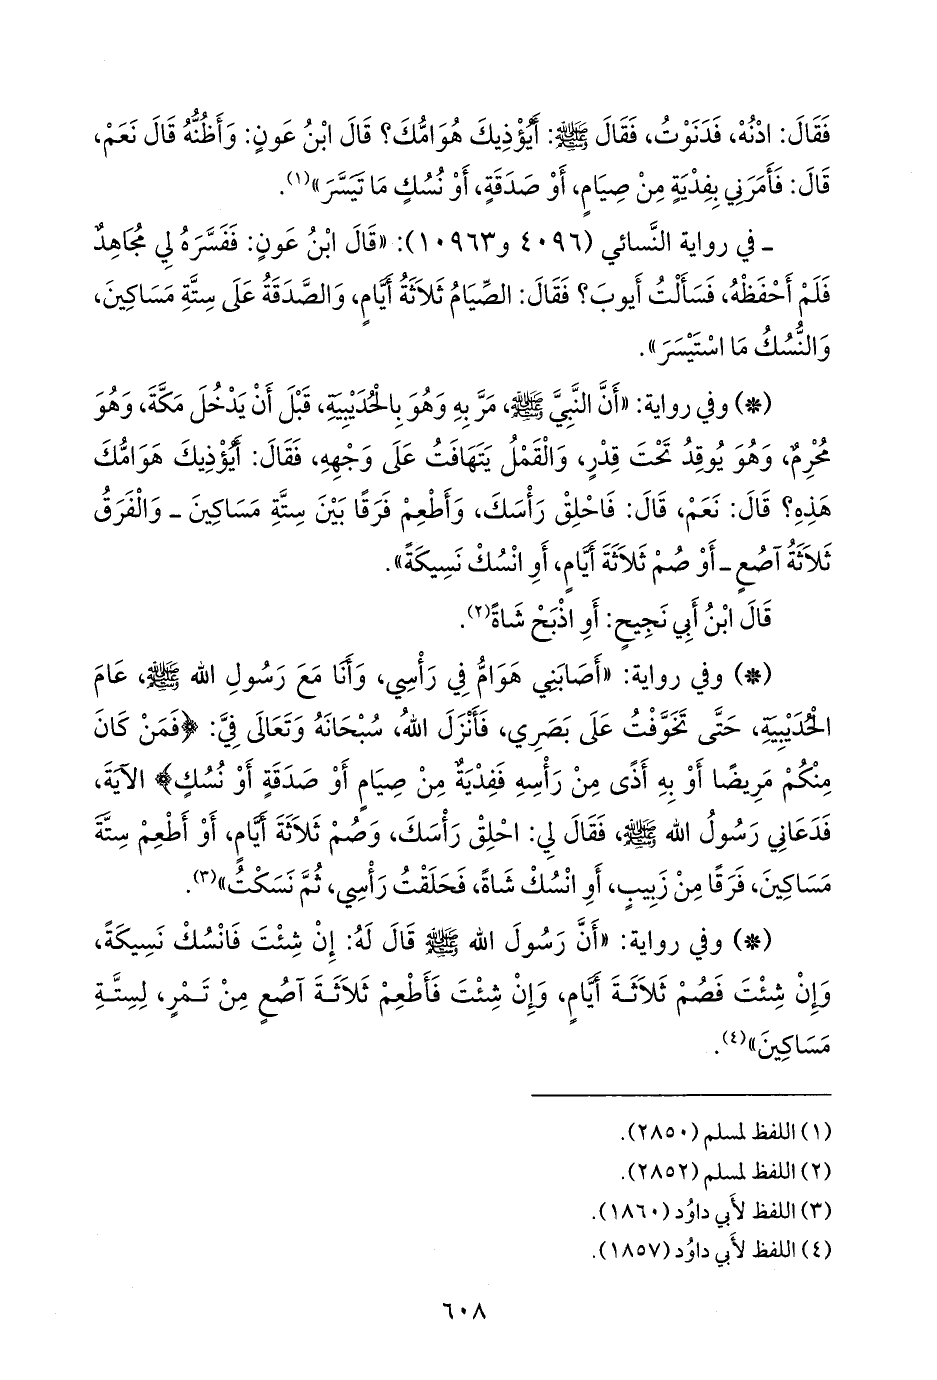 فَقَالَ: ادْنُهْ، فَدَنَوْتُ، فَقَالَ ﷺ: أَيُؤْذِيكَ هُوَامُّكَ؟ قَالَ ابْنُ عَونٍ: وَأَظُنُّهُ قَالَ نَعَمْ،
قَالَ: فَأَمَرَنِي بِفِدْيَةٍ مِنْ صِيَامٍ، أَوْ صَدَقَةٍ، أَوْ نُسُكٍ مَا تَيَسَّرَ»(١).
ـ في رواية النَّسائي (٤٠٩٦ و١٠٩٦٣): «قَالَ ابْنُ عَونٍ: فَفَسَّرَهُ لِي مُجَاهِدٌ
فَلَمْ أَحْفَظْهُ، فَسَأَلْتُ أَيوبَ؟ فَقَالَ: الصِّيَامُ ثَلاَثَةُ أَيَّامٍ، وَالصَّدَقَةُ عَلَى سِتَّةِ مَسَاكِينَ،
وَالنُّسُكُ مَا اسْتَيْسَرَ».
(*) وفي رواية: «أَنَّ النَّبِيَّ ﷺ، مَرَّ بِهِ وَهُوَ بِالْحُدَيْبِيَةِ، قَبْلَ أَنْ يَدْخُلَ مَكَّةَ، وَهُوَ
مُحْرِمٌ، وَهُوَ يُوقِدُ تَحْتَ قِدْرٍ، وَالْقَمْلُ يَتَهَافَتُ عَلَى وَجْهِهِ، فَقَالَ: أَيُؤْذِيكَ هَوَامُّكَ
هَذِهِ؟ قَالَ: نَعَمْ، قَالَ: فَاحْلِقْ رَأْسَكَ، وَأَطْعِمْ فَرَقًا بَيْنَ سِتَّةِ مَسَاكِينَ ـ وَالْفَرَقُ
ثَلاَثَةُ آصُعٍ ـ أَوْ صُمْ ثَلاَثَةَ أَيَّامٍ، أَوِ انْسُكْ نَسِيكَةً».
قَالَ ابْنُ أَبِي نَجِيحٍ: أَوِ اذْبَحْ شَاةً(٢).
(*) وفي رواية: «أَصَابَنِي هَوَامُّ فِي رَأْسِي، وَأَنَا مَعَ رَسُولِ الله ﷺ، عَامَ
الْحُدَيْبِيَةِ، حَتَّى تَخَوَّفْتُ عَلَى بَصَرِي، فَأَنْزَلَ اللهُ، سُبْحَانَهُ وَتَعَالَى فِيَّ: ﴿فَمَنْ كَانَ
مِنْكُمْ مَرِيضًا أَوْ بِهِ أَذًى مِنْ رَأْسِهِ فَفِدْيَةٌ مِنْ صِيَامٍ أَوْ صَدَقَةٍ أَوْ نُسُكٍ﴾ الآيَةَ،
فَدَعَانِي رَسُولُ الله ﷺ، فَقَالَ لِي: احْلِقْ رَأْسَكَ، وَصُمْ ثَلاَثَةَ أَيَّامٍ، أَوْ أَطْعِمْ سِتَّةَ
مَسَاكِينَ، فَرَقًا مِنْ زَبِيبٍ، أَوِ انْسُكْ شَاةً، فَحَلَقْتُ رَأْسِي، ثُمَّ نَسَكْتُ»(٣).
(*) وفي رواية: «أَنَّ رَسُولَ الله ﷺ قَالَ لَهُ: إِنْ شِئْتَ فَانْسُكْ نَسِيكَةً،
وَإِنْ شِئْتَ فَصُمْ ثَلاَثَةَ أَيَّامٍ، وَإِنْ شِئْتَ فَأَطْعِمْ ثَلاَثَةَ آصُعٍ مِنْ تَمْرٍ، لِسِتَّةِ
مَسَاكِينَ»(٤).
(١) اللفظ لمسلم (٢٨٥٠).
(٢) اللفظ لمسلم (٢٨٥٢).
(٣) اللفظ لأَبي داوُد (١٨٦٠).
(٤) اللفظ لأَبي داوُد (١٨٥٧).
٦٠٨